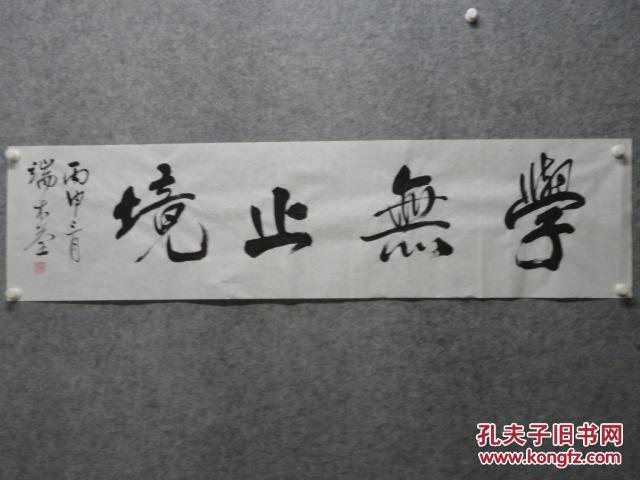 學無止境
丙申三月
端木
孔夫子旧书网
www.kongfz.com